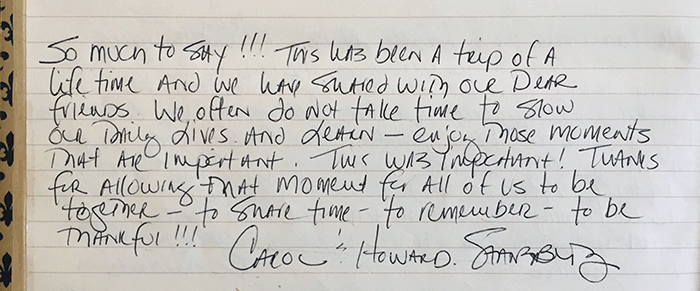 So much to say!!! This has been a trip of a
life time and we have shared with our Dear
friends. We often do not take time to slow
our Daily Lives and Learn – enjoy those moments
that are important. This was important! Thanks
for allowing that moment for all of us to be
together – to share time – to remember – to be
thankful!!!
Carol & Howard.